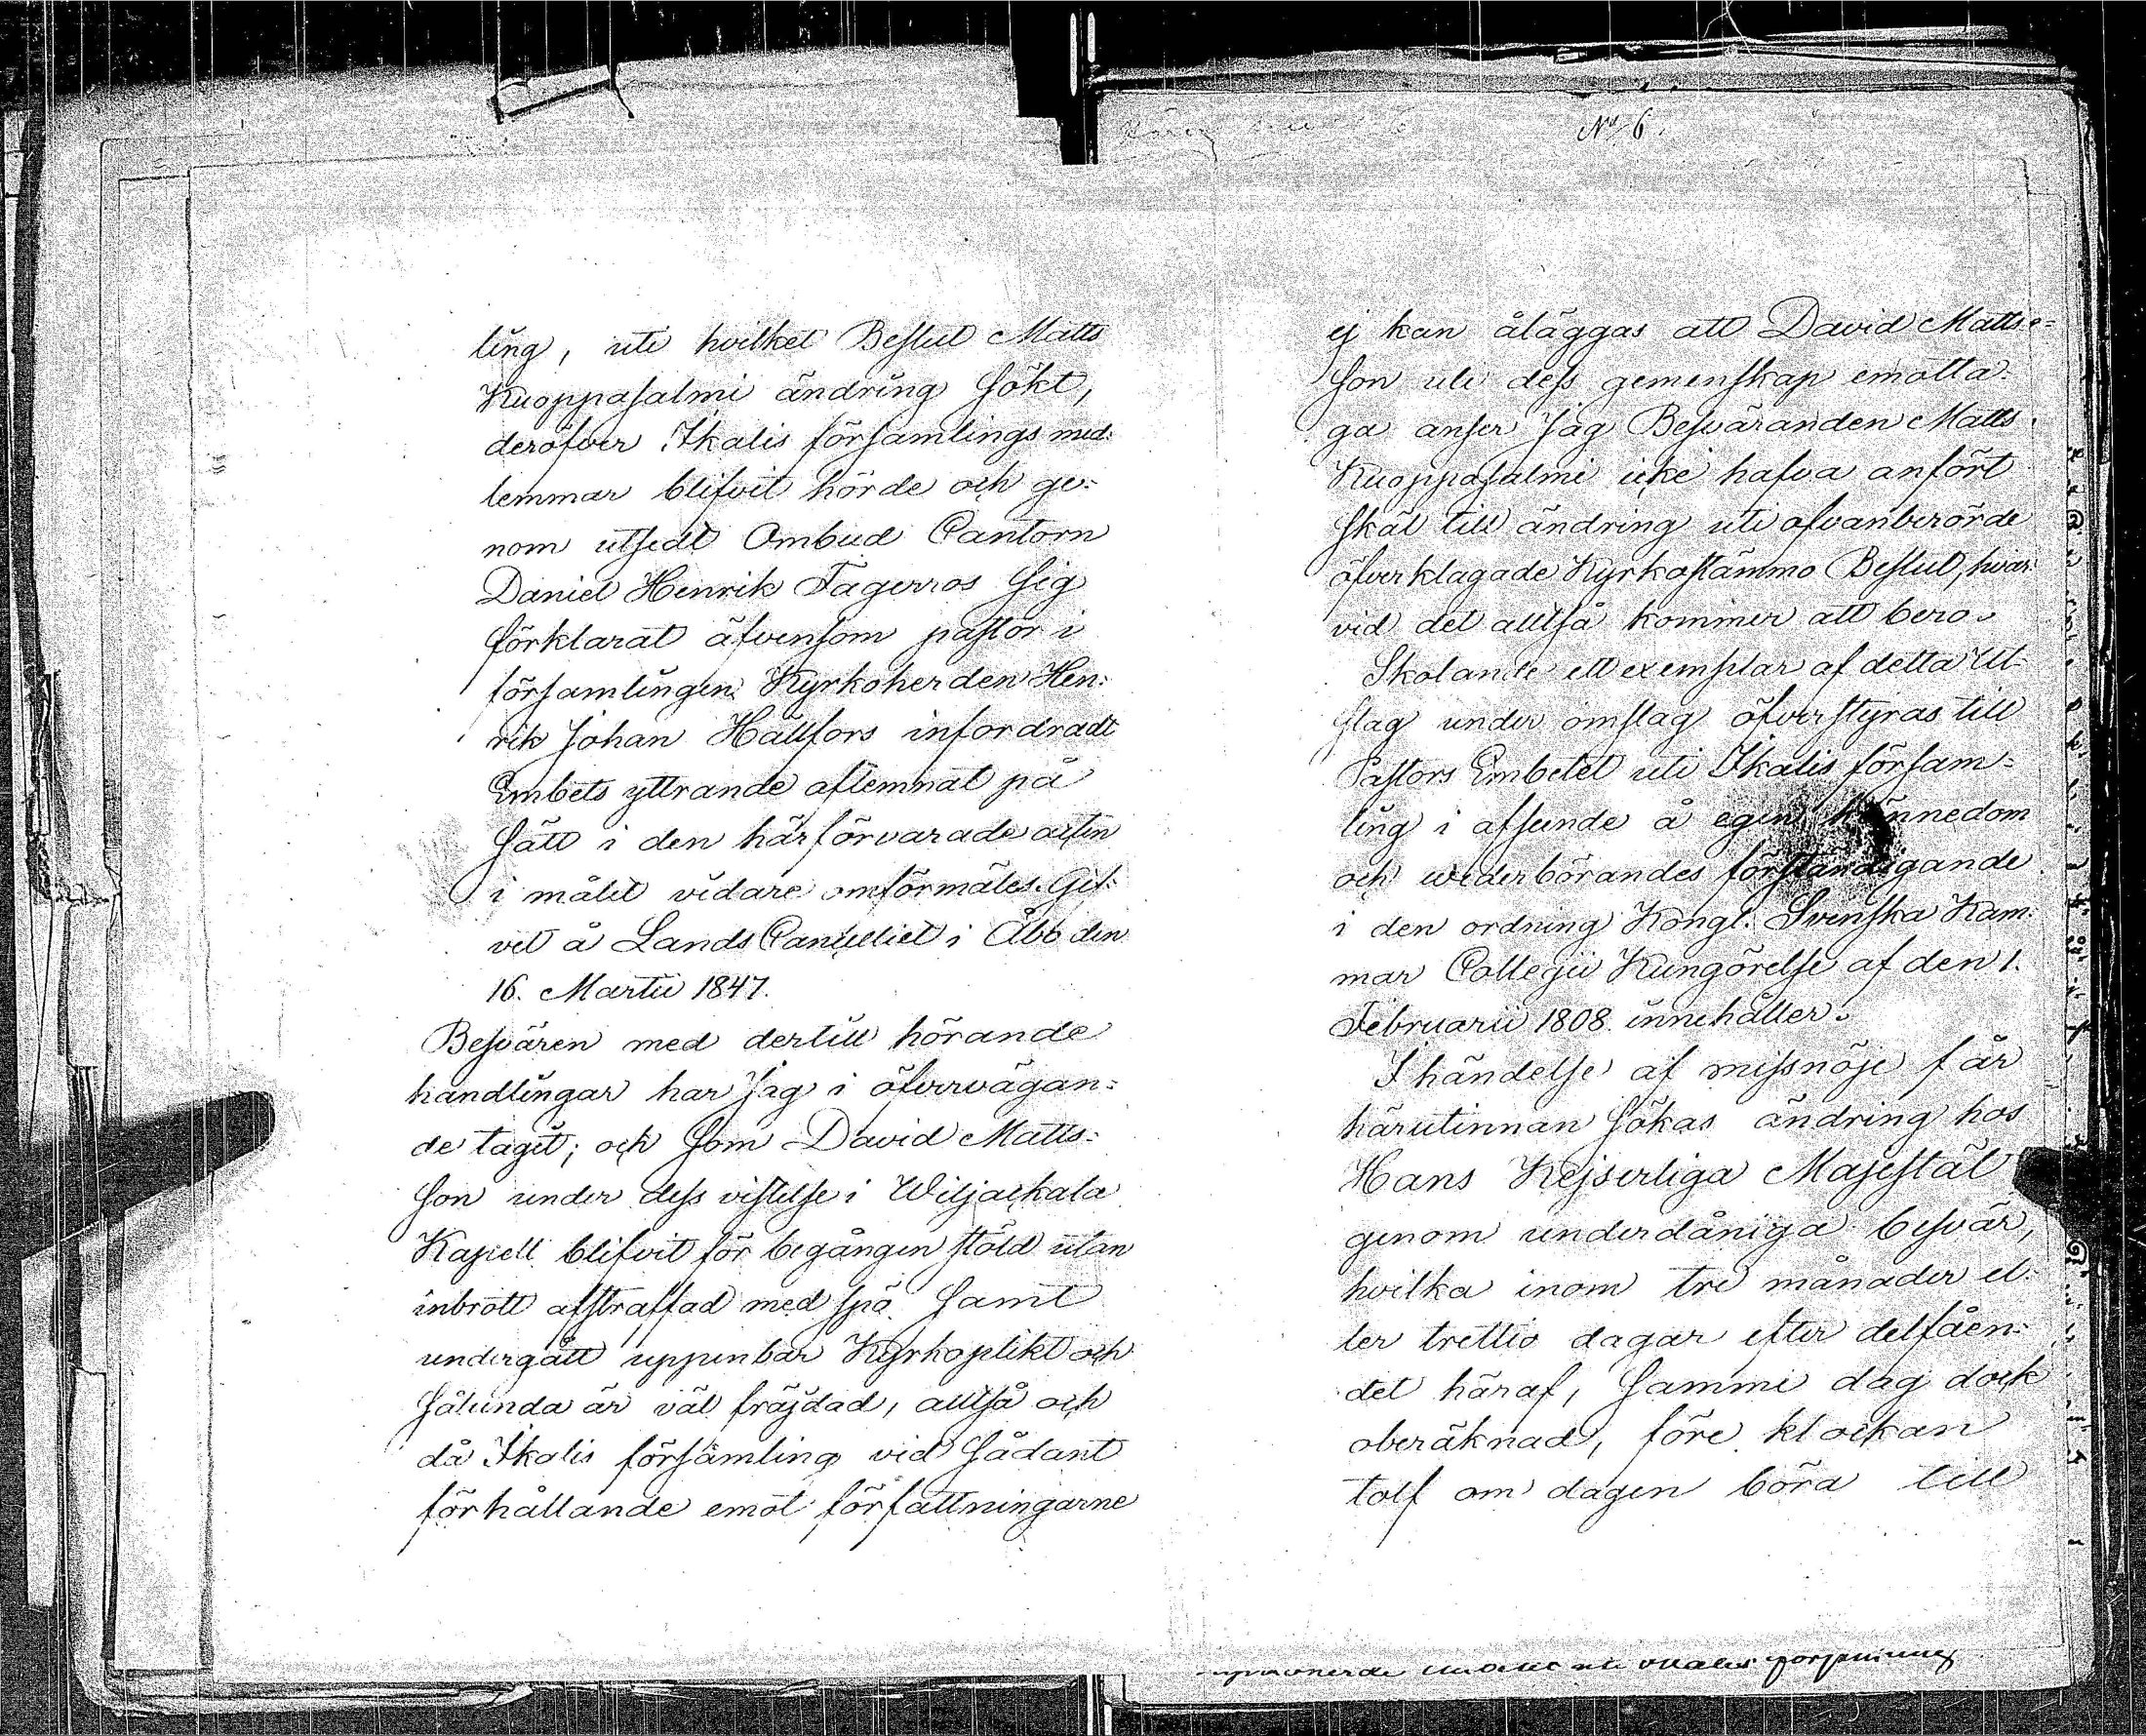 ling, uti hvilket Beslut Matts
Kuoppasalmi ändring sökt,
deröfver Ikalis församlings med-
lemmar blifvit hörde och ge-
nom utsedt Ombud Cantorn
Daniel Henrik Fagerros sig
förklarat äfvensom pastor i
församlingen Kyrkoherden Hen-
rik Johan Hällfors infordradt
Embets yttrande aflemnat på
sätt i den här förvarade acten
i målet vidare omförmäles. Gif-
vet å Lands Cancelliet i Åbo den
16. Martii 1847.
Besvären med dertill hörande
handlingar har Jag i öfvervägan-
de tagit; och som David Matts-
son under dess vistelse i Wiljackala
Kapell blifvit för begången stöld utan
inbrott afstraffad med spö samt
undergått uppenbar Kyrkoplikt och
sålunda är väl fräjdad, alltså och
då Ikalis församling vid sådant
förhållande emot författningarne
No 6.
ej kan åläggas att David Matts-
son uti dess gemenskap emotta-
ga anser Jag Besväranden Matts
Kuoppasalmi icke hafva anfört
skäl till ändring uti ofvanberörde
öfverklagade Kyrkostämmo Beslut, hvar-
vid det alltså kommer att bero.
Skolande ett exemplar af detta Ut-
slag under omslag öfverstyras till
Pastors Embetet uti Ikalis försam-
ling i afseende å egen kännedom
och wederbörandes förständigande
i den ordning Kongl. Svenska Kam-
mar Collegii Kungörelse af den 1.
Februarii 1808 innehåller.
I händelse af missnöje får
härutinnan sökas ändring hos
Hans Kejserliga Majestät
genom underdåniga besvär,
hvilka inom tre månader el-
ler trettio dagar efter delfåen-
det häraf, samma dag dock
oberäknad, före klockan
tolf om dagen böra till